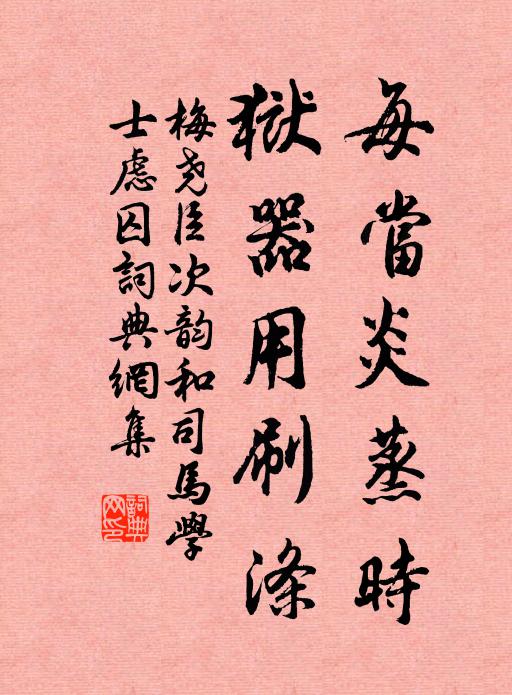 每當炎蒸時
獄器用刷滌
梅尧臣次韵和司馬學
士慮囚詞典網集
詞典
网印